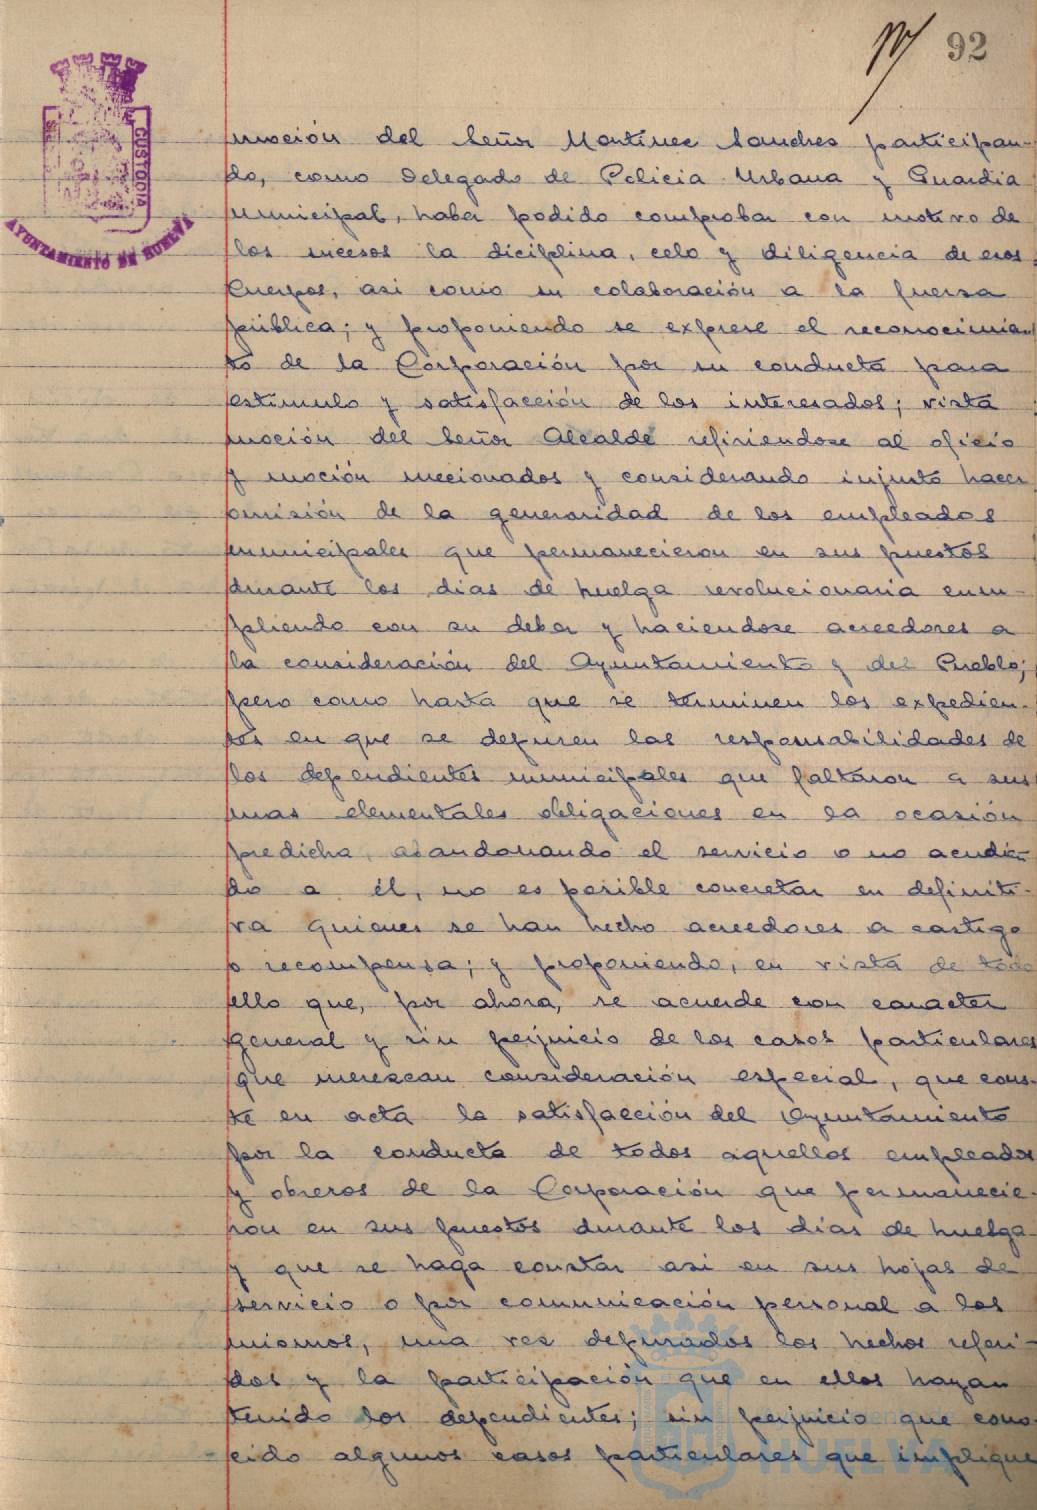 92
CUSTODIA
AYUNTAMIENTO DE HUELVA
moción del Señor Martínez Sanchez participan-
do, como Delegado de Policia Urbana y Guardia
Municipal, haber podido comprobar con motivo de
los sucesos la diciplina, celo y diligencia de esos
Cuerpos, asi como su colaboración a la fuerza
pública; y proponiendo se exprese el reconocimien-
to de la Corporación por su conducta para
estimulo y satisfacción de los interesados; vista
moción del Señor Alcalde refiriendose al oficio
y moción meccionados y considerando injusto hacer
omisión de la generosidad de los empleados
municipales que permanecieron en sus puestos
durante los dias de huelga revolucionaria cum-
pliendo con su deber y haciendose acreedores a
la consideración del Ayuntamiento y del Pueblo;
pero como hasta que se terminen los expedien-
tes en que se depuren las responsabilidades de
los dependientes municipales que faltaron a sus
mas elementales obligaciones en la ocasión
predicha, abandonando el servicio o no acudien-
do a él, no es posible concretar en definiti-
va quienes se han hecho acreedores a castigo
o recompensa; y proponiendo, en vista de todo
ello que, por ahora, se acuerde con caracter
general y sin perjuicio de los casos particulares
que merezcan consideración especial, que cons-
te en acta la satisfacción del Ayuntamiento
por la conducta de todos aquellos empleados
y obreros de la Corporación que permanecie-
ron en sus puestos durante los días de huelga
y que se haga constar asi en sus hojas de
servicio o por comunicación personal a los
mismos, una vez depurados los hechos referi-
dos y la participación que en ellos hayan
tenido los dependientes; sin perjuicio que cono-
cido algunos casos particulares que implique
HUELVA